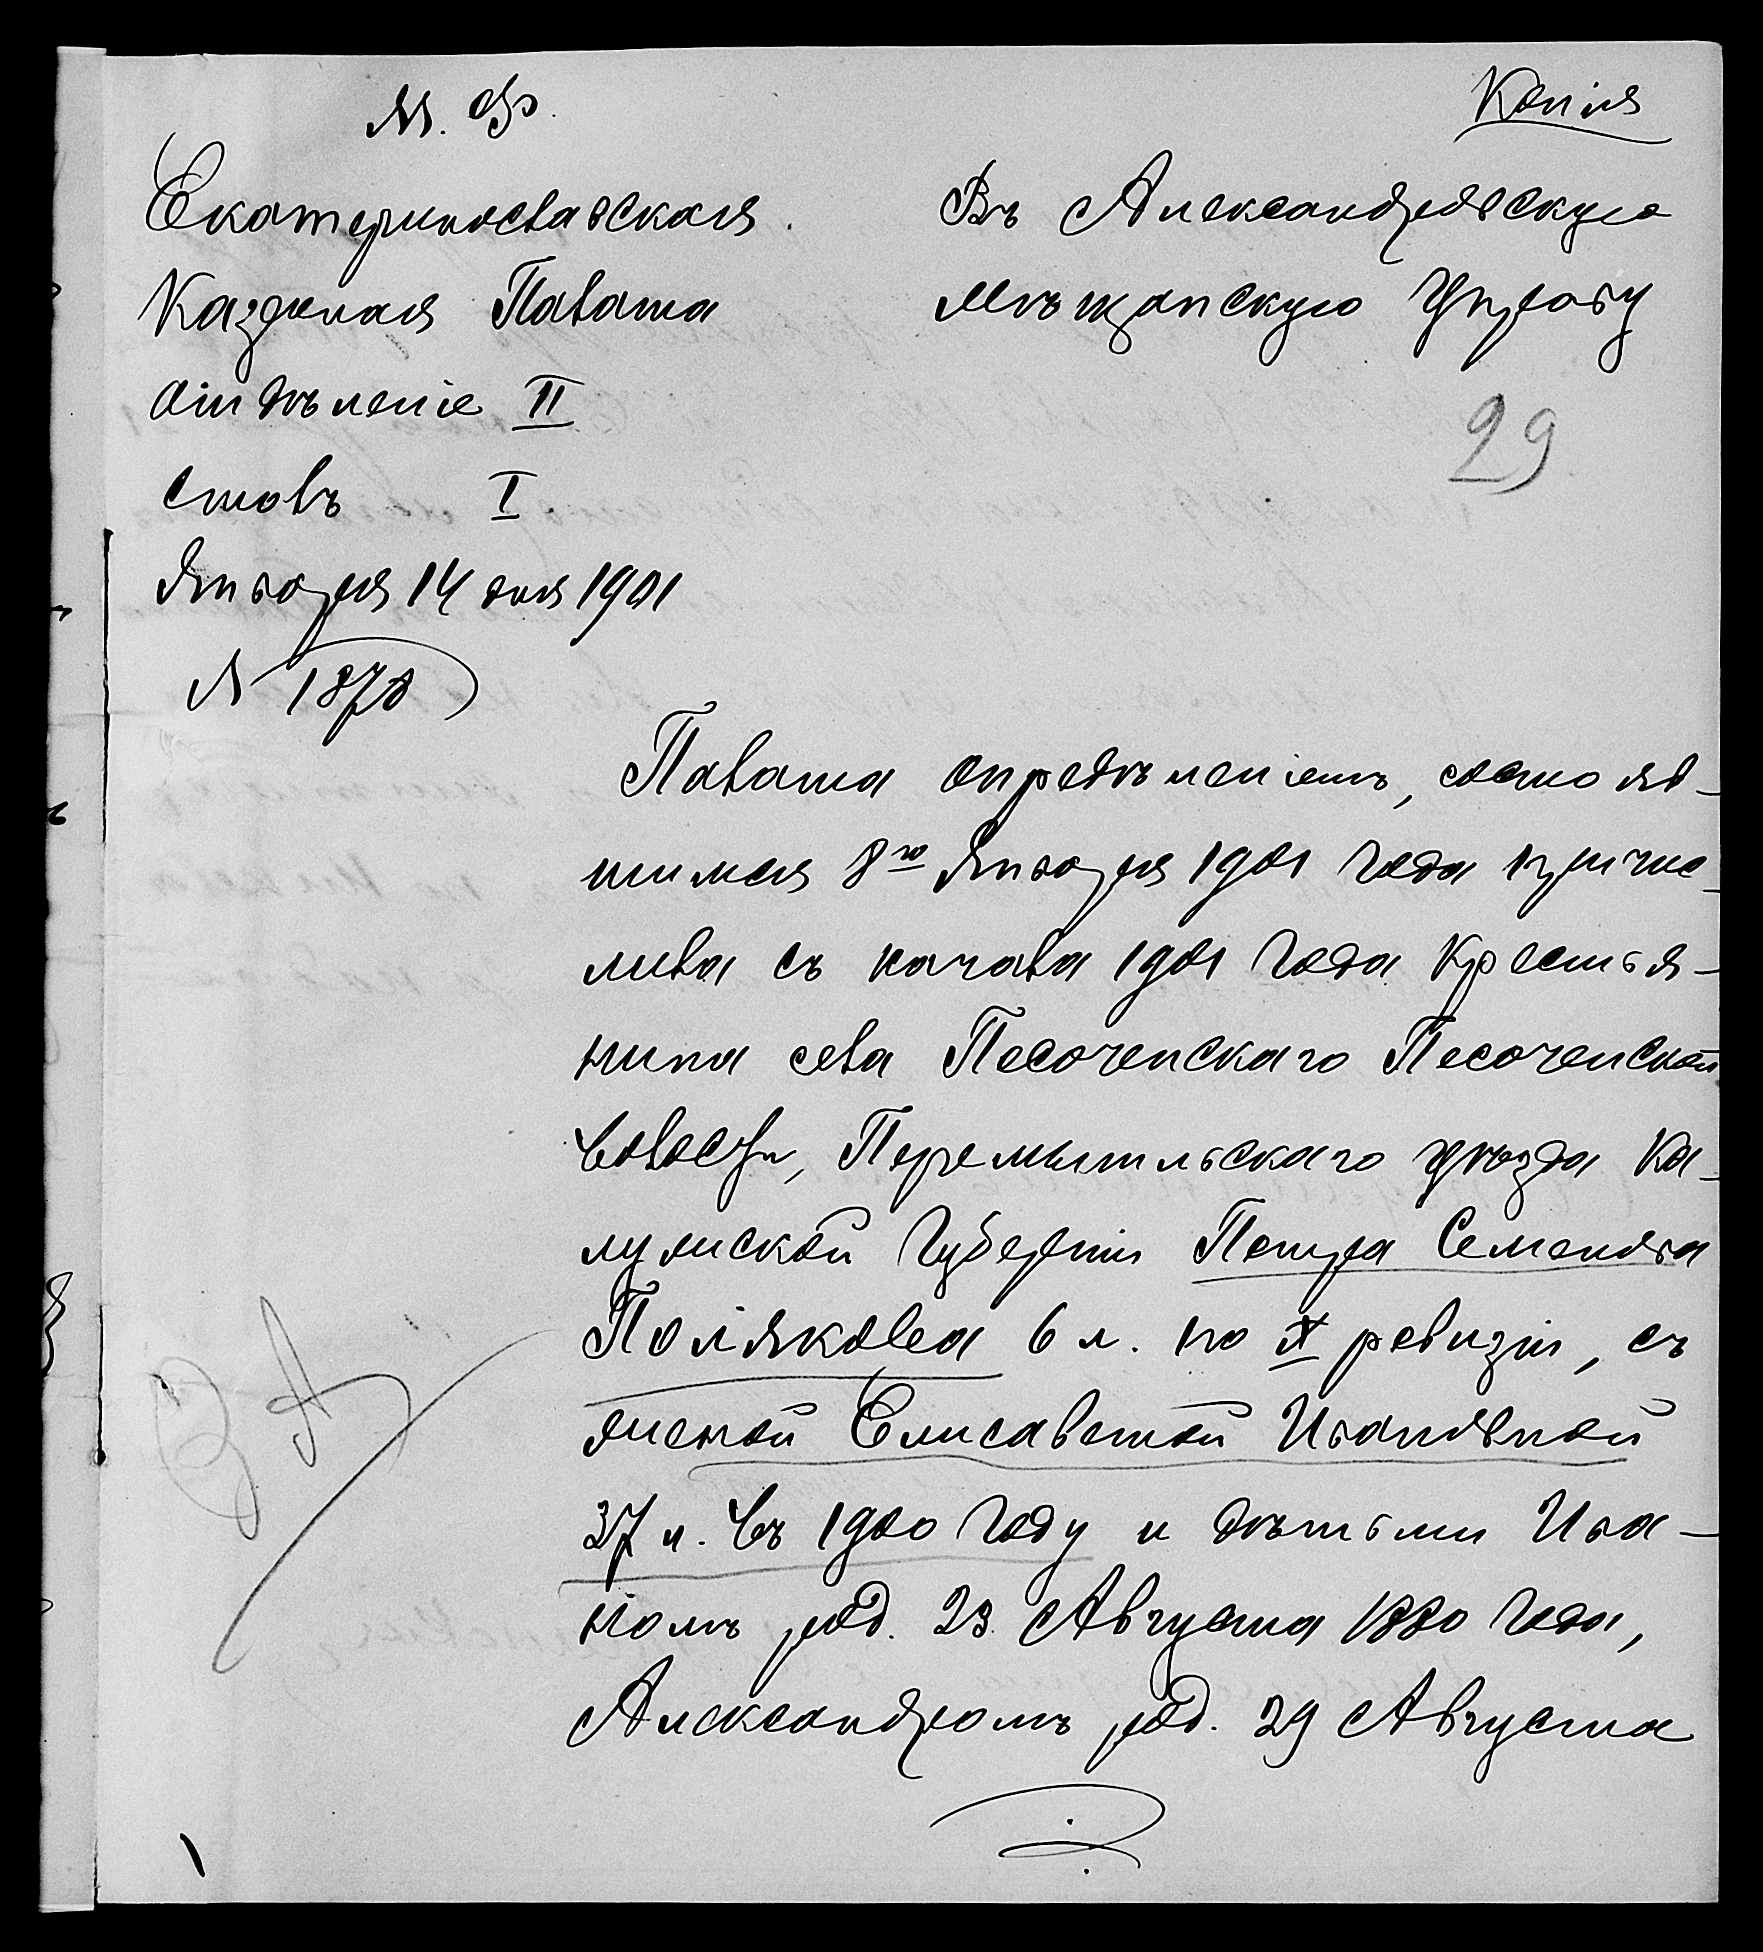 М. Ф.
Копія
Екатеринославская
Казенная Палата
Отдѣленіе II
Столъ I
Января 14 дня 1901
№ 1878
Въ Александровскую
Мѣщанскую Управу
29
Палата опредѣленіемъ, состояв-
шимся 8го Января 1901 года причис-
лила съ начала 1901 года Крестья-
нина села Песоченскаго Песоченской
волости, Перемышльскаго уѣзда Ка-
лужской Губерніи Петра Семенова
Полякова 6 л. по X ревизіи, съ
женой Елисаветой Ивановной
37 л. въ 1900 году и дѣтьми Ива-
номъ род. 23 Августа 1880 года,
Александромъ род. 29 Августа